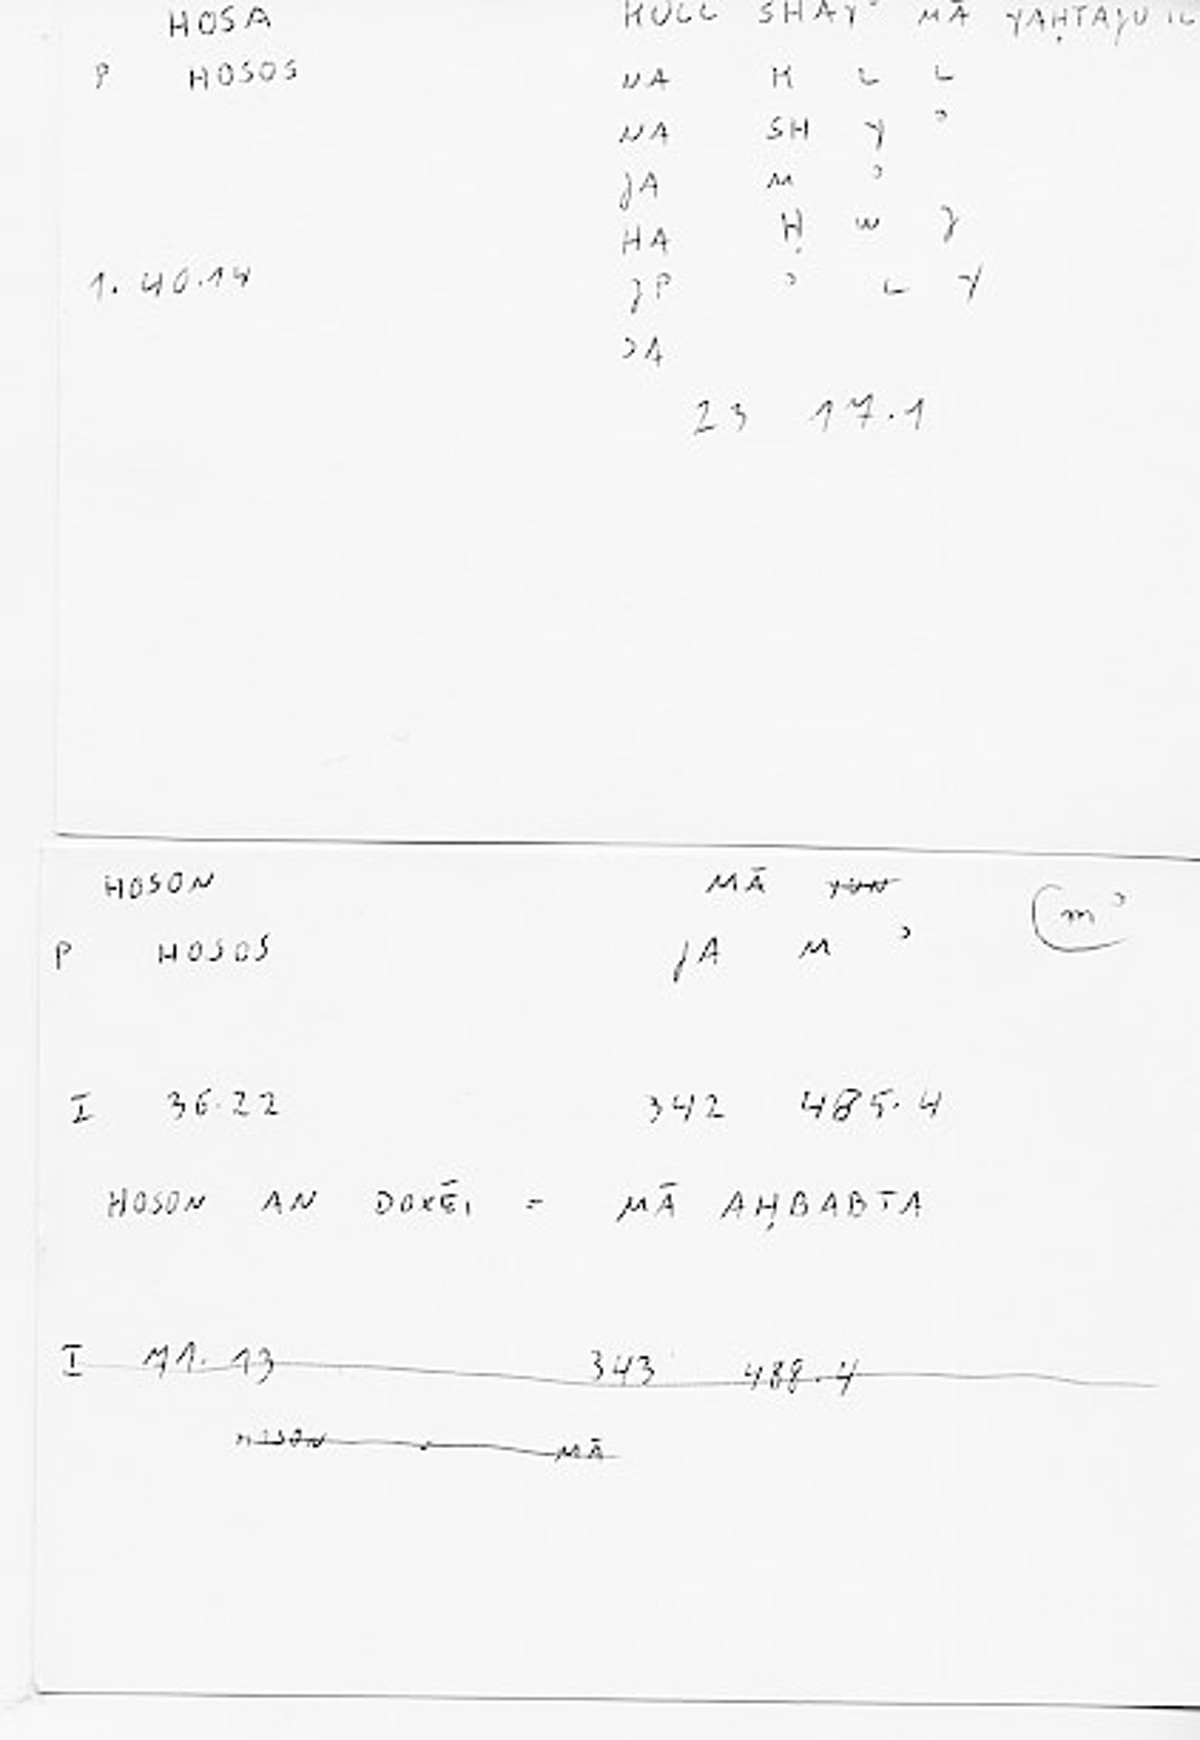 HOSA KULL SHAYʾ MĀ YAḤTAJU
P HOSOS NA K L L
NA SH Y ʾ
JA M ʾ
HA Ḥ W J
1. 40.14 JP ʾ L Y
JA
23 17.1
HOSON MĀ YUN (m ʾ
P HOSOS JA M ʾ
I 36.22 342 485.4
HOSON AN DOKĒI = MĀ AḤBABTA
I 71.13 343 488.4
HOSON . MĀ